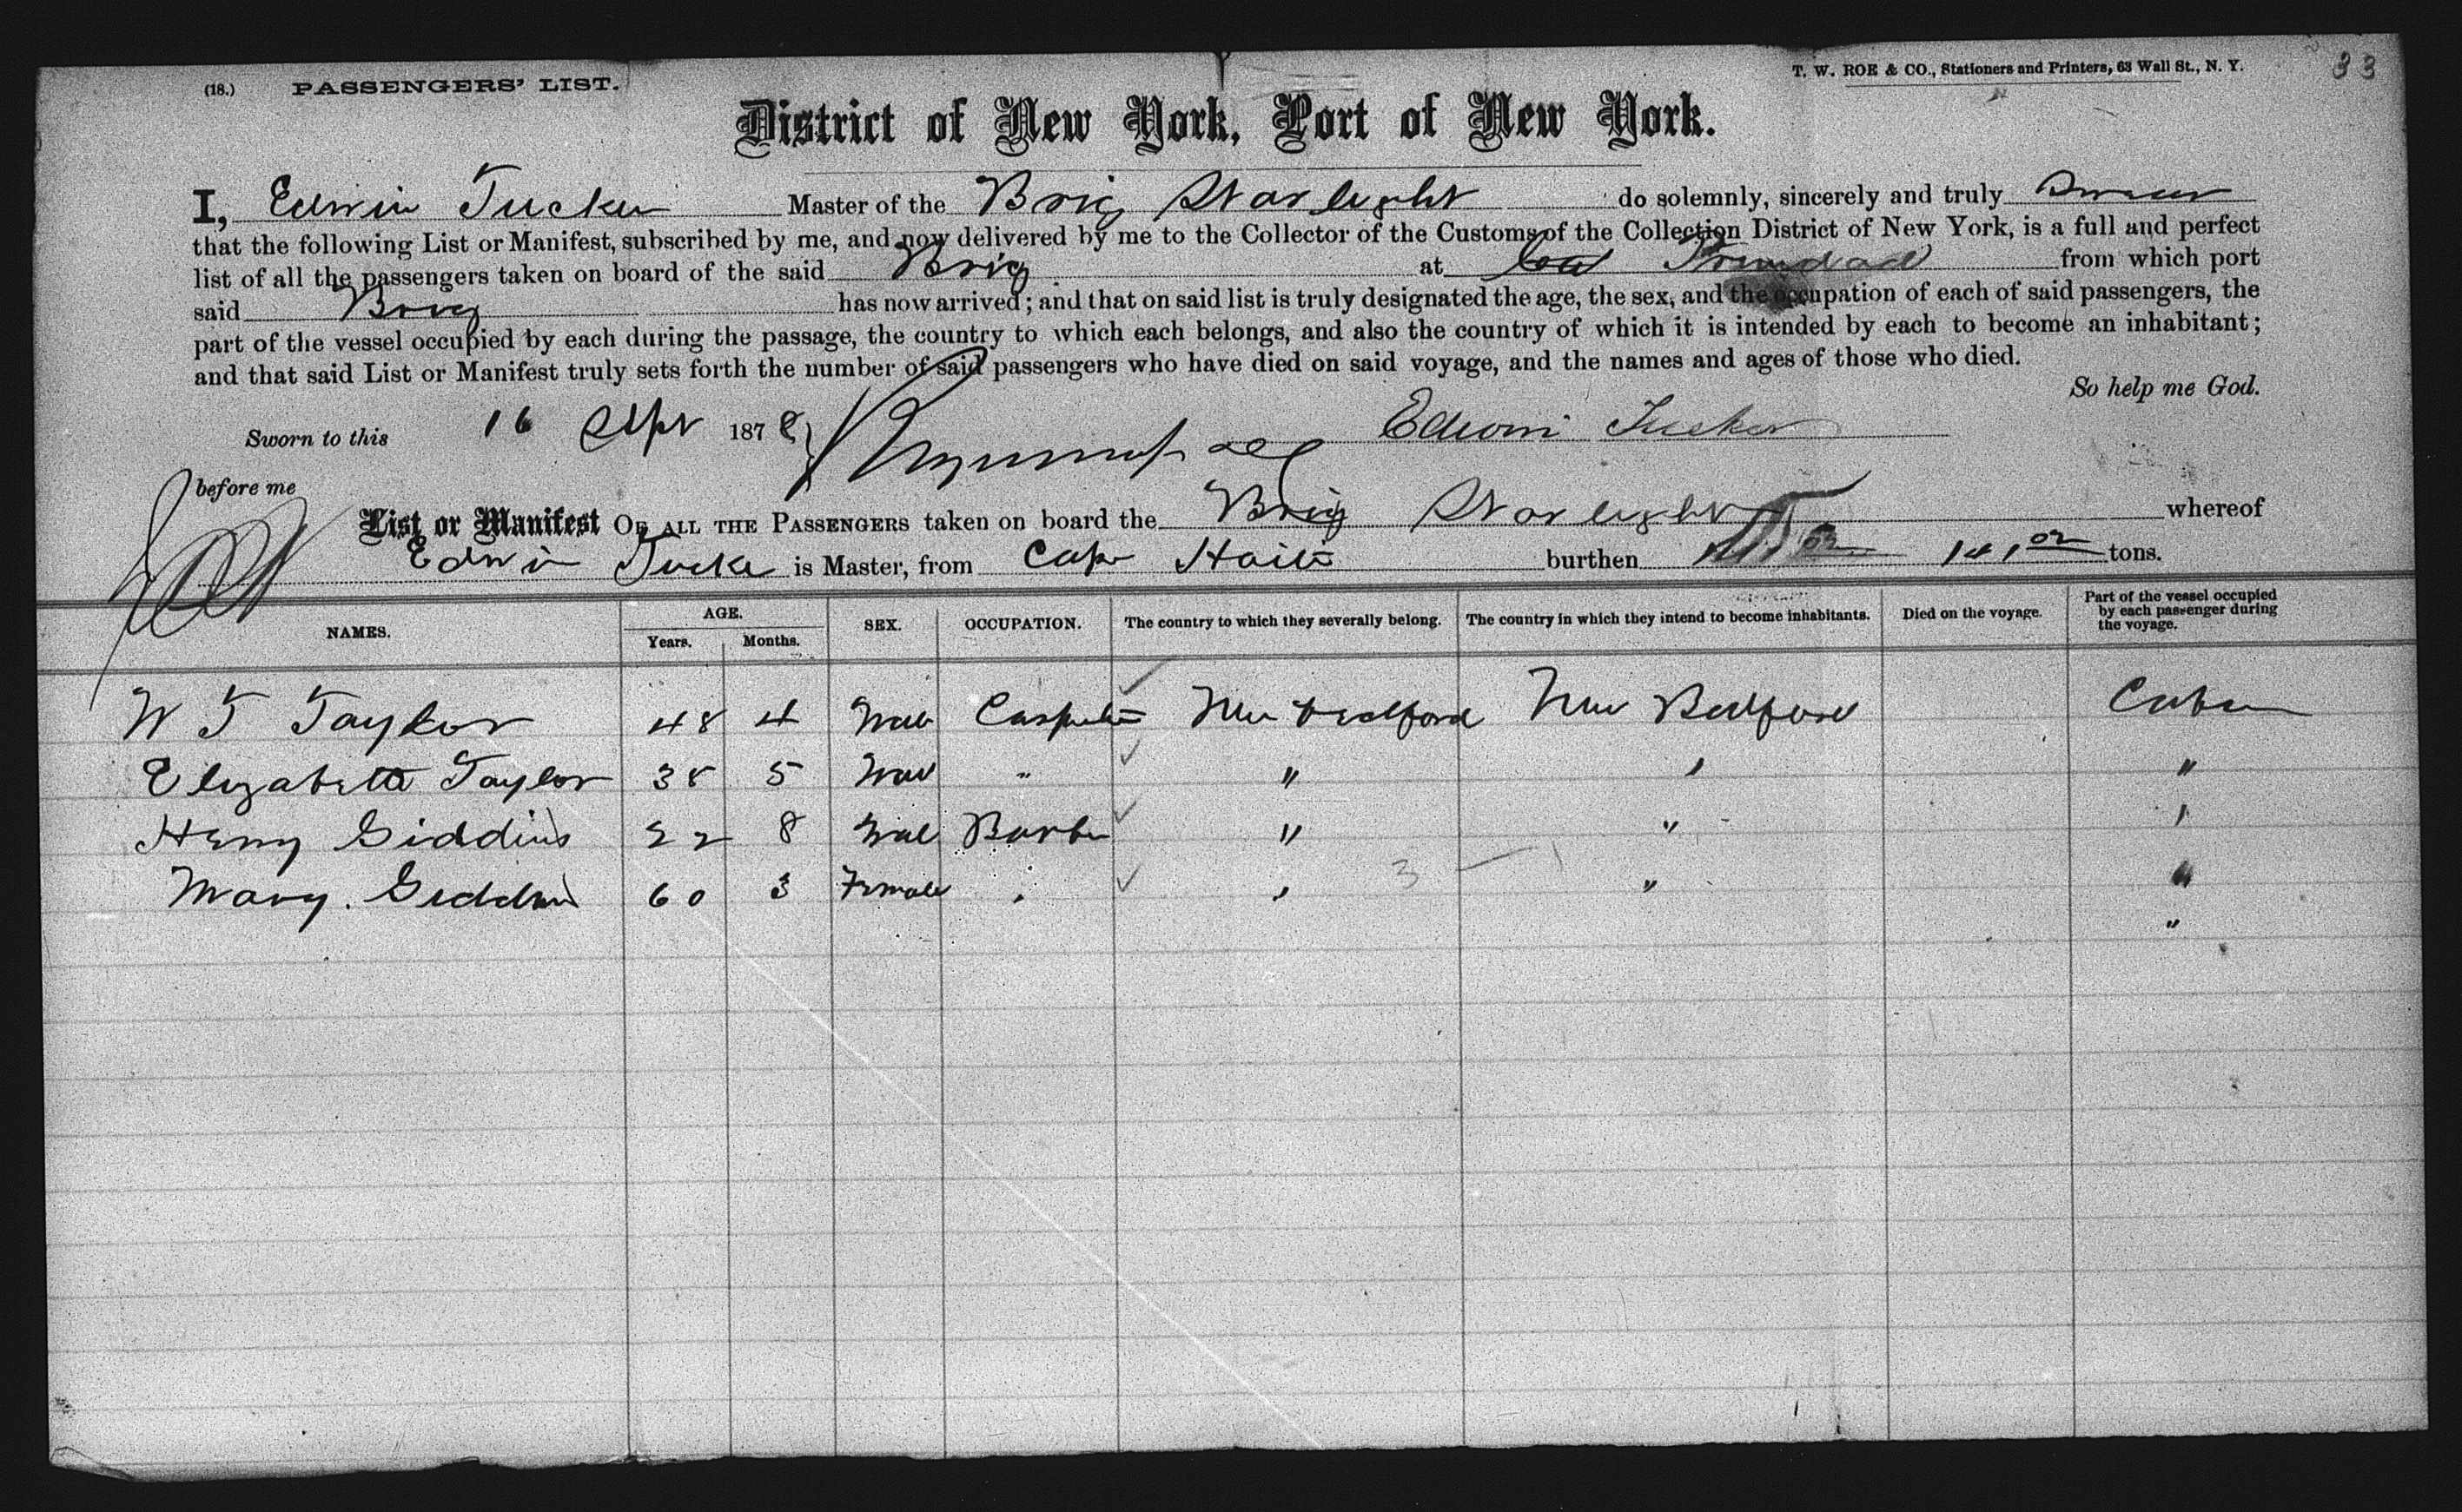 (18.) PASSENGERS' LIST. T. W. ROE & CO., Stationers and Printers, 63 Wall St., N. Y. 33
District of New York, Port of New York.
I, Edwin Tucker Master of the Brig Starlight do solemnly, sincerely and truly swear
that the following List or Manifest, subscribed by me, and now delivered by me to the Collector of the Customs of the Collection District of New York, is a full and perfect
list of all the passengers taken on board of the said Brig at Trinidad from which port
said Brig has now arrived; and that on said list is truly designated the age, the sex, and the occupation of each of said passengers, the
part of the vessel occupied by each during the passage, the country to which each belongs, and also the country of which it is intended by each to become an inhabitant;
and that said List or Manifest truly sets forth the number of said passengers who have died on said voyage, and the names and ages of those who died.
So help me God.
Sworn to this 16 Sept 1878 Edwin Tucker
before me
List or Manifest OF ALL THE PASSENGERS taken on board the Brig Starlight whereof
Edwin Tucke is Master, from Cape Haiti burthen 141 02 tons.
NAMES. AGE. Years. Months. SEX. OCCUPATION. The country to which they severally belong. The country in which they intend to become inhabitants. Died on the voyage. Part of the vessel occupied by each passenger during the voyage.
W T Taylor 48 4 Male Carpenter New Bedford New Bedford Cabin
Elizabeth Taylor 38 5 " " " "
Henry Giddins 22 8 Male Barber " " "
Mary. Giddins 60 3 Female " " " "
"